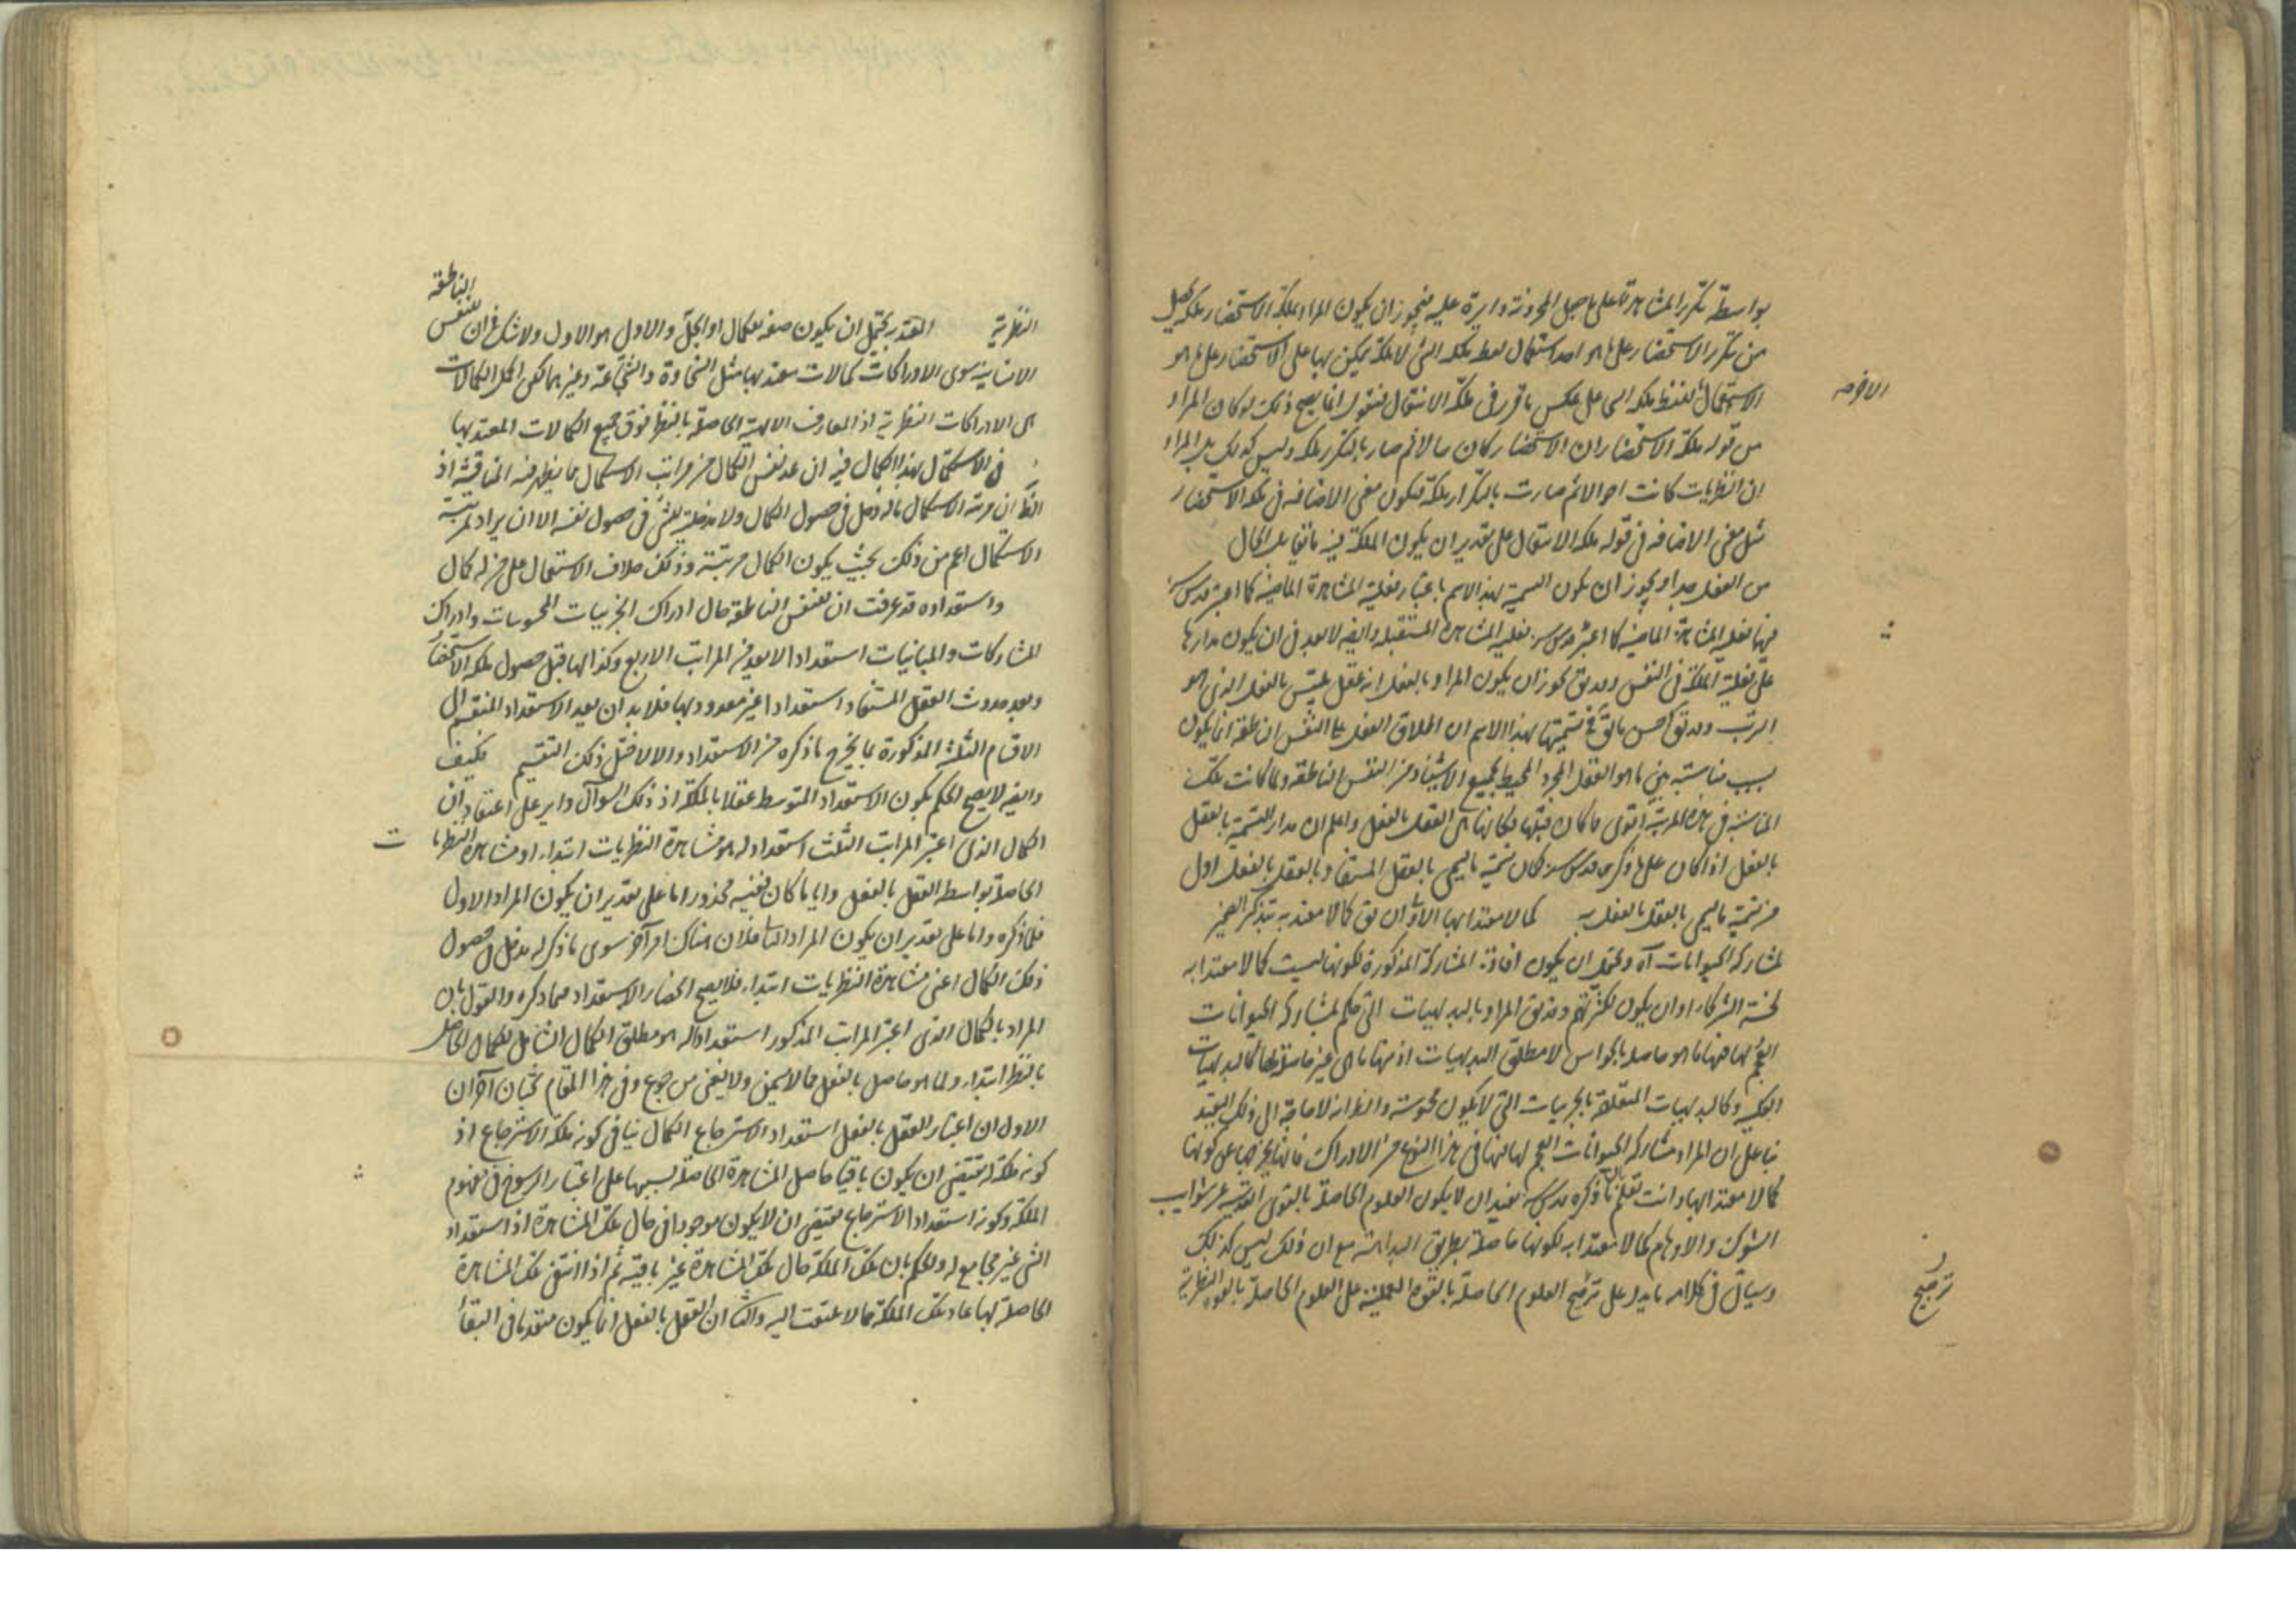 بواسطة تكرر المشاهدة على ما حصل المخزونة دايرة عليه فيجوز ان يكون المراد بملكة الاستحضار ملكة تحصل
من تكرر الاستحضار على ما هو احد استعمال لفظ ملكة الشئ لا ملكة يمكن بها على الاستحضار على ما هو
الاستعمال لفظ ملكة الشى على عكس ما قرر فى ملكة الانتقال فنقول انما يصح ذلك لو كان المراد
الاخر منه
من قوله ملكة الاستحضار ان الاستحضار كان حالا ثم صار بالتكرر ملكة وليس كذلك بل المراد
ان النظريات كانت احوالا ثم صارت بالتكرار ملكة فيكون معنى الاضافة فى ملكة الاستحضار
مثل معنى الاضافة فى قوله ملكة الانتقال على تقدير ان يكون الملكة فيه ما يقابل الحال
من العقل جدا ويجوز ان يكون التسمية بهذا الاسم باعتبار فعلية المشاهدة الماضية كما اعتبر قدس سره
فيها فعلية المشاهدة الماضية كما اعتبر قدس سره فعلية المشاهدة المستقبلة وايضا لا بعد فى ان يكون مدارها
على فعلية الملكة فى النفس وقد يق يجوز ان يكون المراد بالفعل انه عقل يلتبس بالفعل الذى هو
الترتب وقد يق احسن ما يق فى تسميتها بهذا الاسم ان اطلاق العقل على النفس الناطقة انما يكون
بسبب مناسبة بين ما هو العقل المجرد المحيط بجميع الاشياء وبين النفس الناطقة ولما كانت تلك
المناسبة فى هذه المرتبة اقوى مما كان قبلها فكانها هى العقل بالفعل واعلم ان مدار التسمية بالعقل
بالفعل اذا كان على ما ذكره قدس سره لكان تسمية ما يسمى بالعقل المستفاد بالعقل بالفعل اولى
من تسمية ما يسمى بالعقل بالفعل به كمالا معتدا بها الاولى ان يق كمالا معتدا به بتذكير الضمير
لمشاركة الحيوانات آه ويحتمل ان يكون افادة المشاركة المذكورة لكونها ليست كمالا معتدا به
لخسة الشركاء او ان يكون لكثرتهم وقد يق المراد بالبديهيات التى حكم بمشاركة الحيوانات
العجم لها فيها ما هو حاصل بالحواس لا مطلق البديهيات اذ منها ما هى غير حاصلة لها كالبديهيات
الكلية وكالبديهيات المتعلقة بالجزئيات التى لا يكون محسوسة والظ انه لا حاجة الى ذلك التقييد
بناء على ان المراد مشاركة الحيوانات العجم لها فيها فى هذا النوع من الادراك فانها يخرجها عن كونها
كمالا معتدا بها وانت تعلم ان ما ذكره قدس سره يفيد ان لا يكون العلوم الحاصلة بالقوى القدسية عن شوايب
الشكوك والاوهام كمالا معتدا به لكونها حاصلة بطريق البداهة مع ان ذلك ليس كذلك
وسيأتى فى كلامه ما يدل على ترجيح العلوم الحاصلة بالقوة العملية على العلوم الحاصلة بالقوة النظرية
ترجيح
النظرية المعتد بها يحتمل ان يكون صفة للكمال او للجلّ والاول هو الاولى ولا شك فى ان للنفس
الناطقة
الانسانية سوى الادراكات كمالات معتد بها مثل السخاوة والشجاعة وغيرهما لكن اجل الكمالات
هى الادراكات النظرية اذ المعارف الالهية الحاصلة بالنظر فوق جميع الكمالات المعتد بها
فى الاستكمال بهذا الكمال فيه ان عد نفس الكمال من مراتب الاستكمال مما يظهر فيه المناقشة اذ
الظ ان مرتبة الاستكمال ما له دخل فى حصول الكمال ولا مدخلية للشئ فى حصول نفسه الا ان يراد بمرتبة
الاستكمال اعم من ذلك بحيث يكون الكمال مرتبته وذلك خلاف الاستعمال على من له كمال
واستعداده قد عرفت ان للنفس الناطقة حال ادراك الجزئيات المحسوسات وادراك
المشاركات والمباينات استعداد الا يعد من المراتب الاربع وكذا لها قبل حصول ملكة الاستحضار
وبعد حدوث العقل المستفاد استعدادا غير معدود بها فلا بد ان يقيد الاستعداد المنقسم الى
الاقسام الثلثة المذكورة بما يخرج ما ذكره من الاستعداد والا لاختل ذلك التقسيم فكيف
وايضا لا يصح الحكم بكون الاستعداد المتوسط عقلا بالملكة اذ ذلك السوآل داير على اعتقاد ان
الكمال الذى اعتبر المراتب الثلث استعداد له هو مشاهدة النظريات ابتداء او مشاهدة النظريا
ت
الحاصلة بواسطة العقل بالفعل وايا ما كان ففيه محذور اما على تقدير ان يكون المراد الاول
فلما ذكره واما على تقدير ان يكون المراد الثانى فلان هناك امرا آخر سوى ما ذكر له مدخل فى حصول
ذلك الكمال اعنى مشاهدة النظريات ابتداء فلا يصح انحصار الاستعداد فيما ذكره والقول بان
المراد بالكمال الذى اعتبر المراتب المذكور استعدادا له هو مطلق الكمال الشامل للكمال الحاصل
بالنظر ابتداء ولما هو حاصل بالفعل مما لا يسمن ولا يغنى من جوع وفى هذا المقام بحثان آخران
الاول ان اعتبار العقل بالفعل استعداد الاسترجاع الكمال ينافى كونه ملكة الاسترجاع اذ
كونه ملكة له يقتضى ان يكون باقيا حاصل المشاهدة الحاصلة بسببها على اعتبار الرسوخ فى مفهوم
الملكة وكونه استعداد الاسترجاع يقتضى ان لا يكون موجودا فى حال تلك المشاهدة اذ استعداد
الشئ غير مجامع له والحكم بان تلك الملكة حال تلك المشاهدة غير باقية ثم اذا انتفى تلك المشاهدة
الحاصلة بها عاد تلك الملكة مما لا يلتفت اليه والثانى ان العقل بالفعل انما يكون متقدما فى البقاء